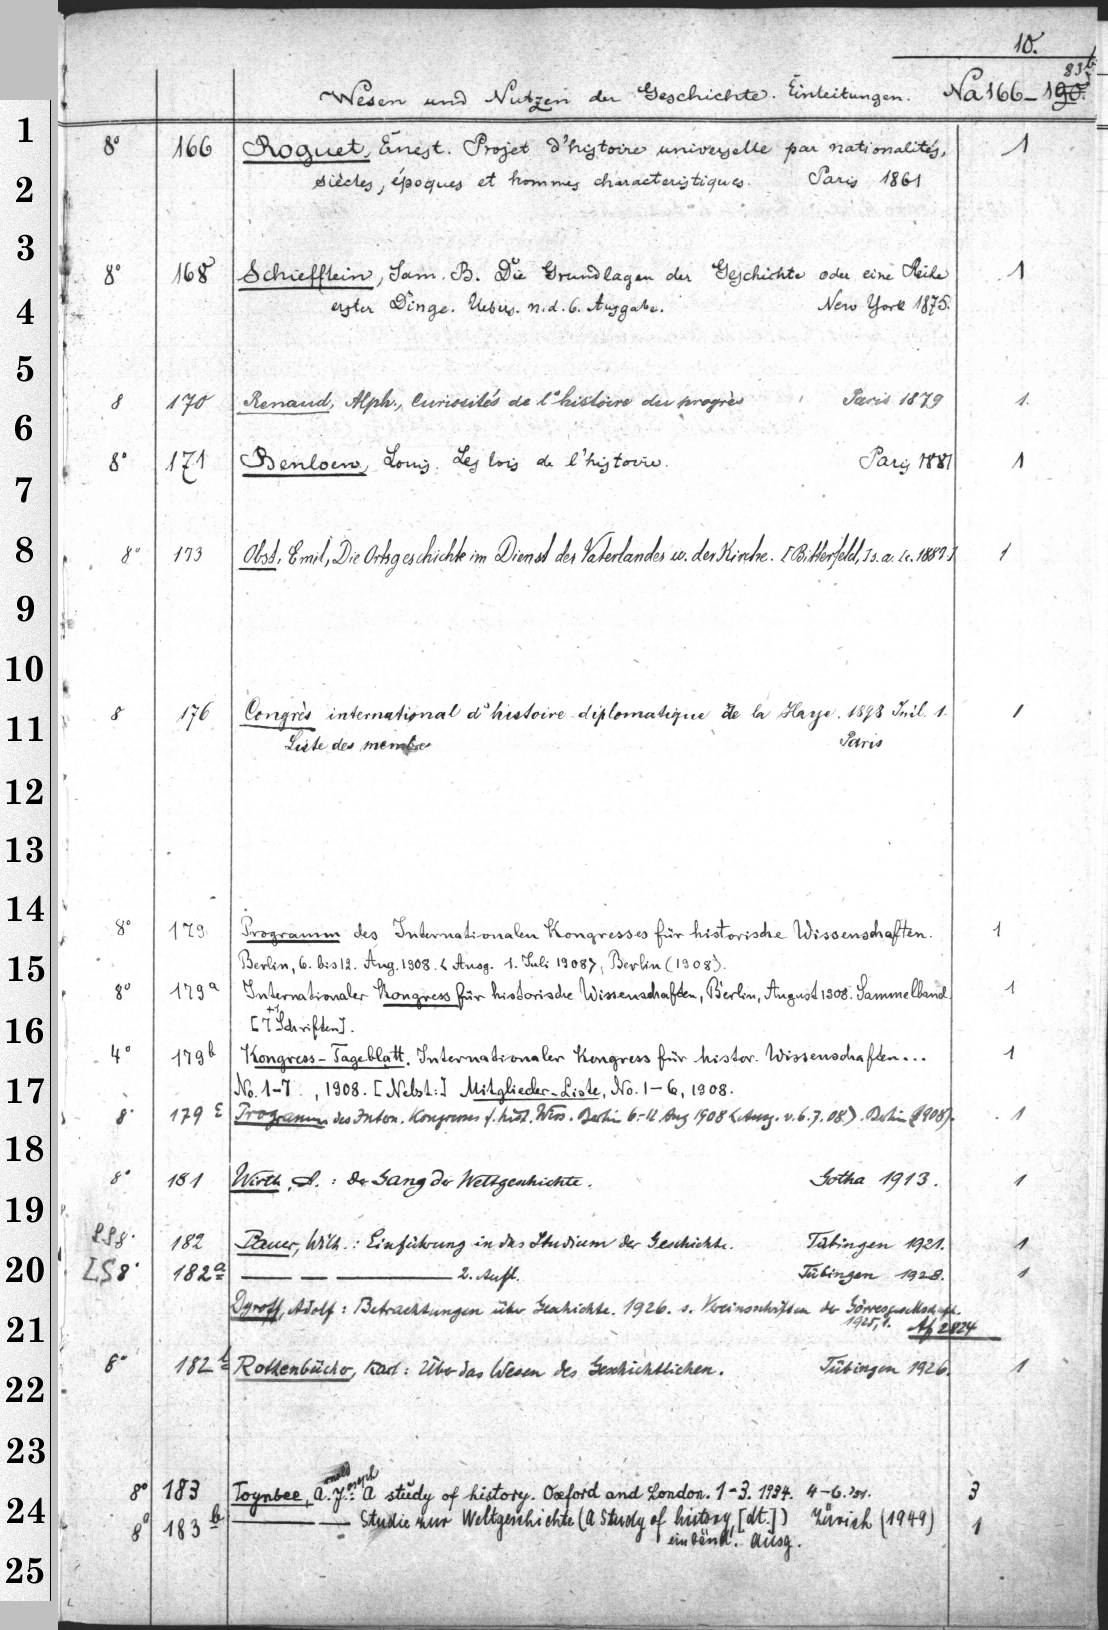 10.
Wesen und Nutzen der Geschichte. Einleitungen. Na 166-190. 83b
1
8° 166 Roguet, Ernest. Projet d'histoire universelle par nationalités, 1
2
siècles, époques et hommes characteristiques. Paris 1861
3
8° 168 Schiefflein, Sam. B. Die Grundlagen der Geschichte oder eine Reihe 1
4
erster Dinge. Uebers. n. d. 6. Ausgabe. New York 1875.
5
8 170 Renaud, Alph., Curiosités de l'histoire du progrès Paris 1879 1.
6
8° 171 Benloew, Louis. Les lois de l'histoire. Paris 1881 1
7
8
8° 173 Obst, Emil, Die Ortsgeschichte im Dienst des Vaterlandes u. der Kirche. [Bitterfeld,] s. a. [c. 1887.] 1
9
10
8 176 Congrès international d'histoire diplomatique de la Haye. 1898 Juil. 1. 1
11
Liste des membres Paris
12
13
14
8° 179 Programm des Internationalen Kongresses für historische Wissenschaften. 1
15
Berlin, 6. bis 12. Aug. 1908. <Ausg. 1. Juli 1908>, Berlin (1908).
8° 179a Internationaler Kongress für historische Wissenschaften, Berlin, August 1908. Sammelband 1
16
[7 Schriften].
4° 179b Kongress-Tageblatt. Internationaler Kongress für histor. Wissenschaften... 1
17
No. 1-7, 1908. [Nebst:] Mitglieder-Liste, No. 1-6, 1908.
8° 179c Programm des Intern. Kongresses f. hist. Wiss. Berlin 6-12 Aug 1908 <Ausg. v. 6.7.08>. Berlin (1908). 1
18
8° 181 Wirth, A.: Der Gang der Weltgeschichte. Gotha 1913. 1
19
LS 8° 182 Bauer, Wilh.: Einführung in das Studium der Geschichte. Tübingen 1921. 1
20
LS 8° 182a — — — 2. Aufl. Tübingen 1928. 1
Dyroff, Adolf: Betrachtungen über Geschichte. 1926. s. Vereinsschriften der Görresgesellschaft.
21
1925,1. Af 2824
8° 182b Rothenbücher, Karl: Über das Wesen des Geschichtlichen. Tübingen 1926. 1
22
23
8° 183 Toynbee, Arnold Joseph: A study of history. Oxford and London. 1-3. 1934. 4-6. 3
24
8° 183b — — Studie zur Weltgeschichte (A Study of history [dt.]) Zürich (1949) 1
einbänd. Ausg.
25